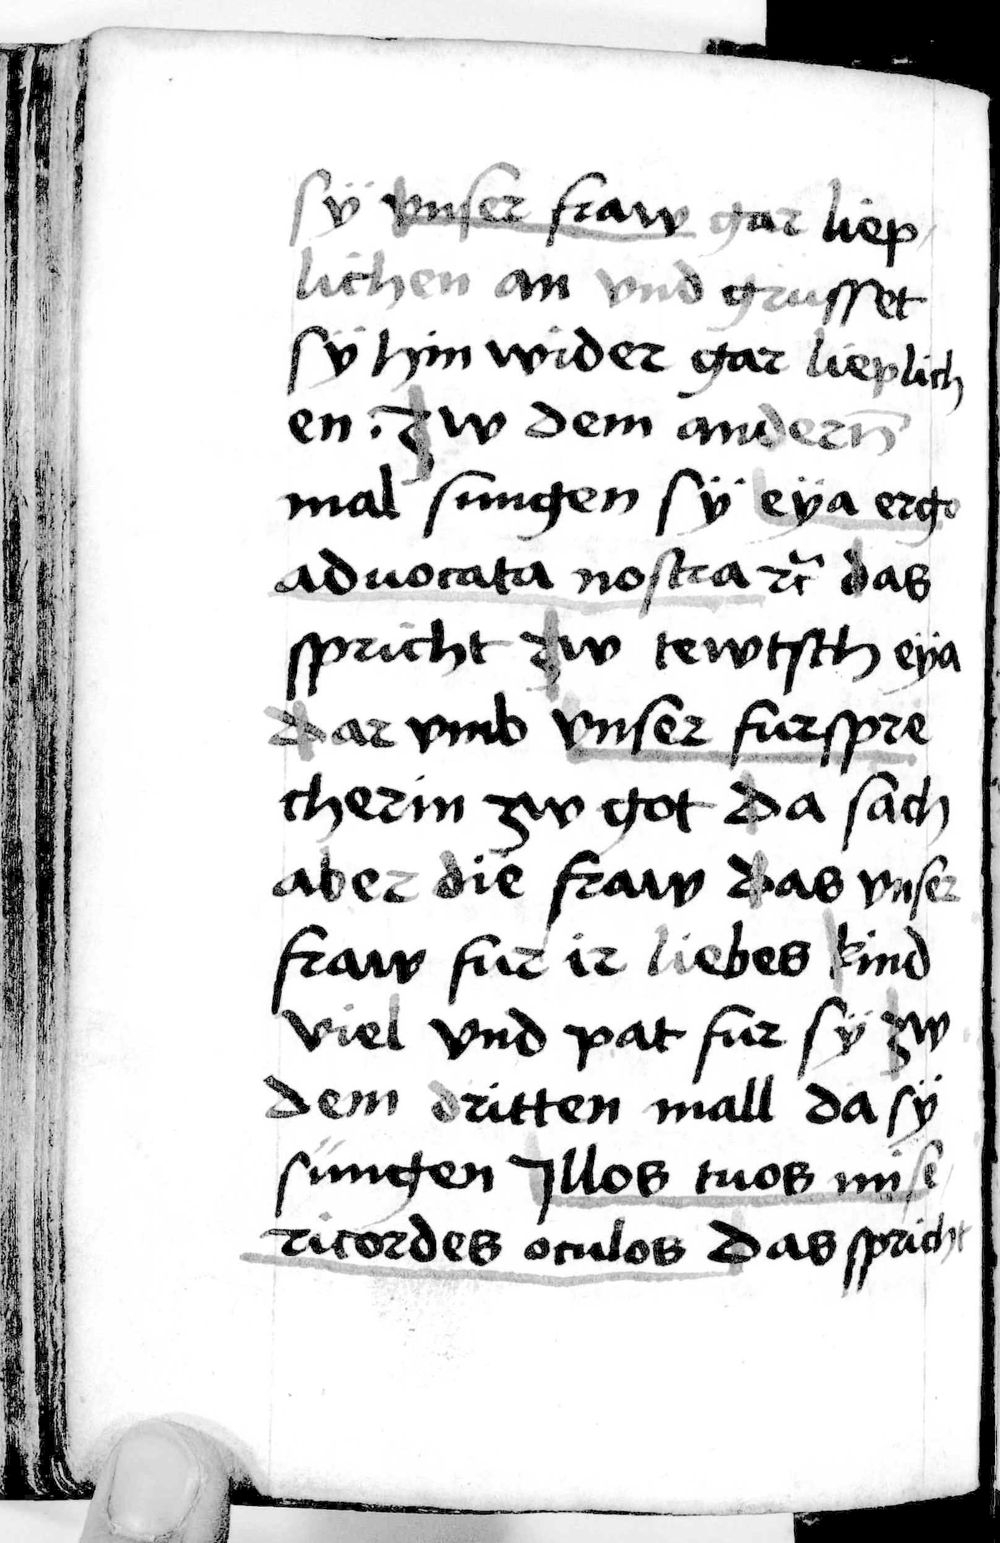 sÿ vnser fraw gar liep
lichen an vnd grusset
sÿ hin wider gar lieplich
en . zw dem andern̄
mal sungen sÿ eÿa ergo
aduocata nostra rc̃ das
spricht zw tewtsch eÿa
dar vmb vnser furspre
cherin zw got da sach
aber die fraw das vnser
fraw fur ir liebes kind
viel vnd pat fur sÿ zw
dem dritten mall da sÿ
sungen Illos tuos mise
ricordes oculos das spricht